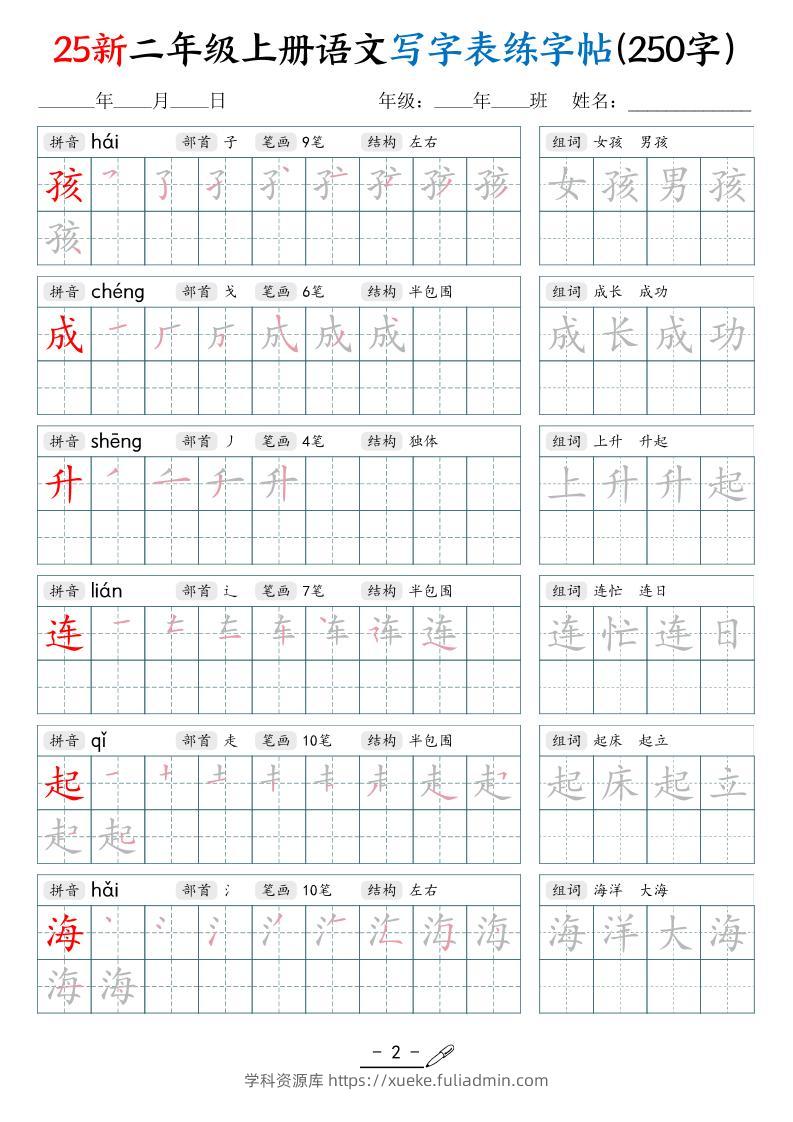 25新二年级上册语文写字表练字帖(250字)
______年____月____日 年级：____年____班 姓名：_____________
拼音 hái 部首 子 笔画 9笔 结构 左右 组词 女孩 男孩
孩 女孩男孩
孩
拼音 chéng 部首 戈 笔画 6笔 结构 半包围 组词 成长 成功
成 成 成长成功
拼音 shēng 部首 丿 笔画 4笔 结构 独体 组词 上升 升起
升 升 上升升起
拼音 lián 部首 辶 笔画 7笔 结构 半包围 组词 连忙 连日
连 连 连忙连日
拼音 qǐ 部首 走 笔画 10笔 结构 半包围 组词 起床 起立
起 起床起立
起 起
拼音 hǎi 部首 氵 笔画 10笔 结构 左右 组词 海洋 大海
海 海洋大海
海 海
- 2 -
学科资源库 https://xueke.fuliadmin.com